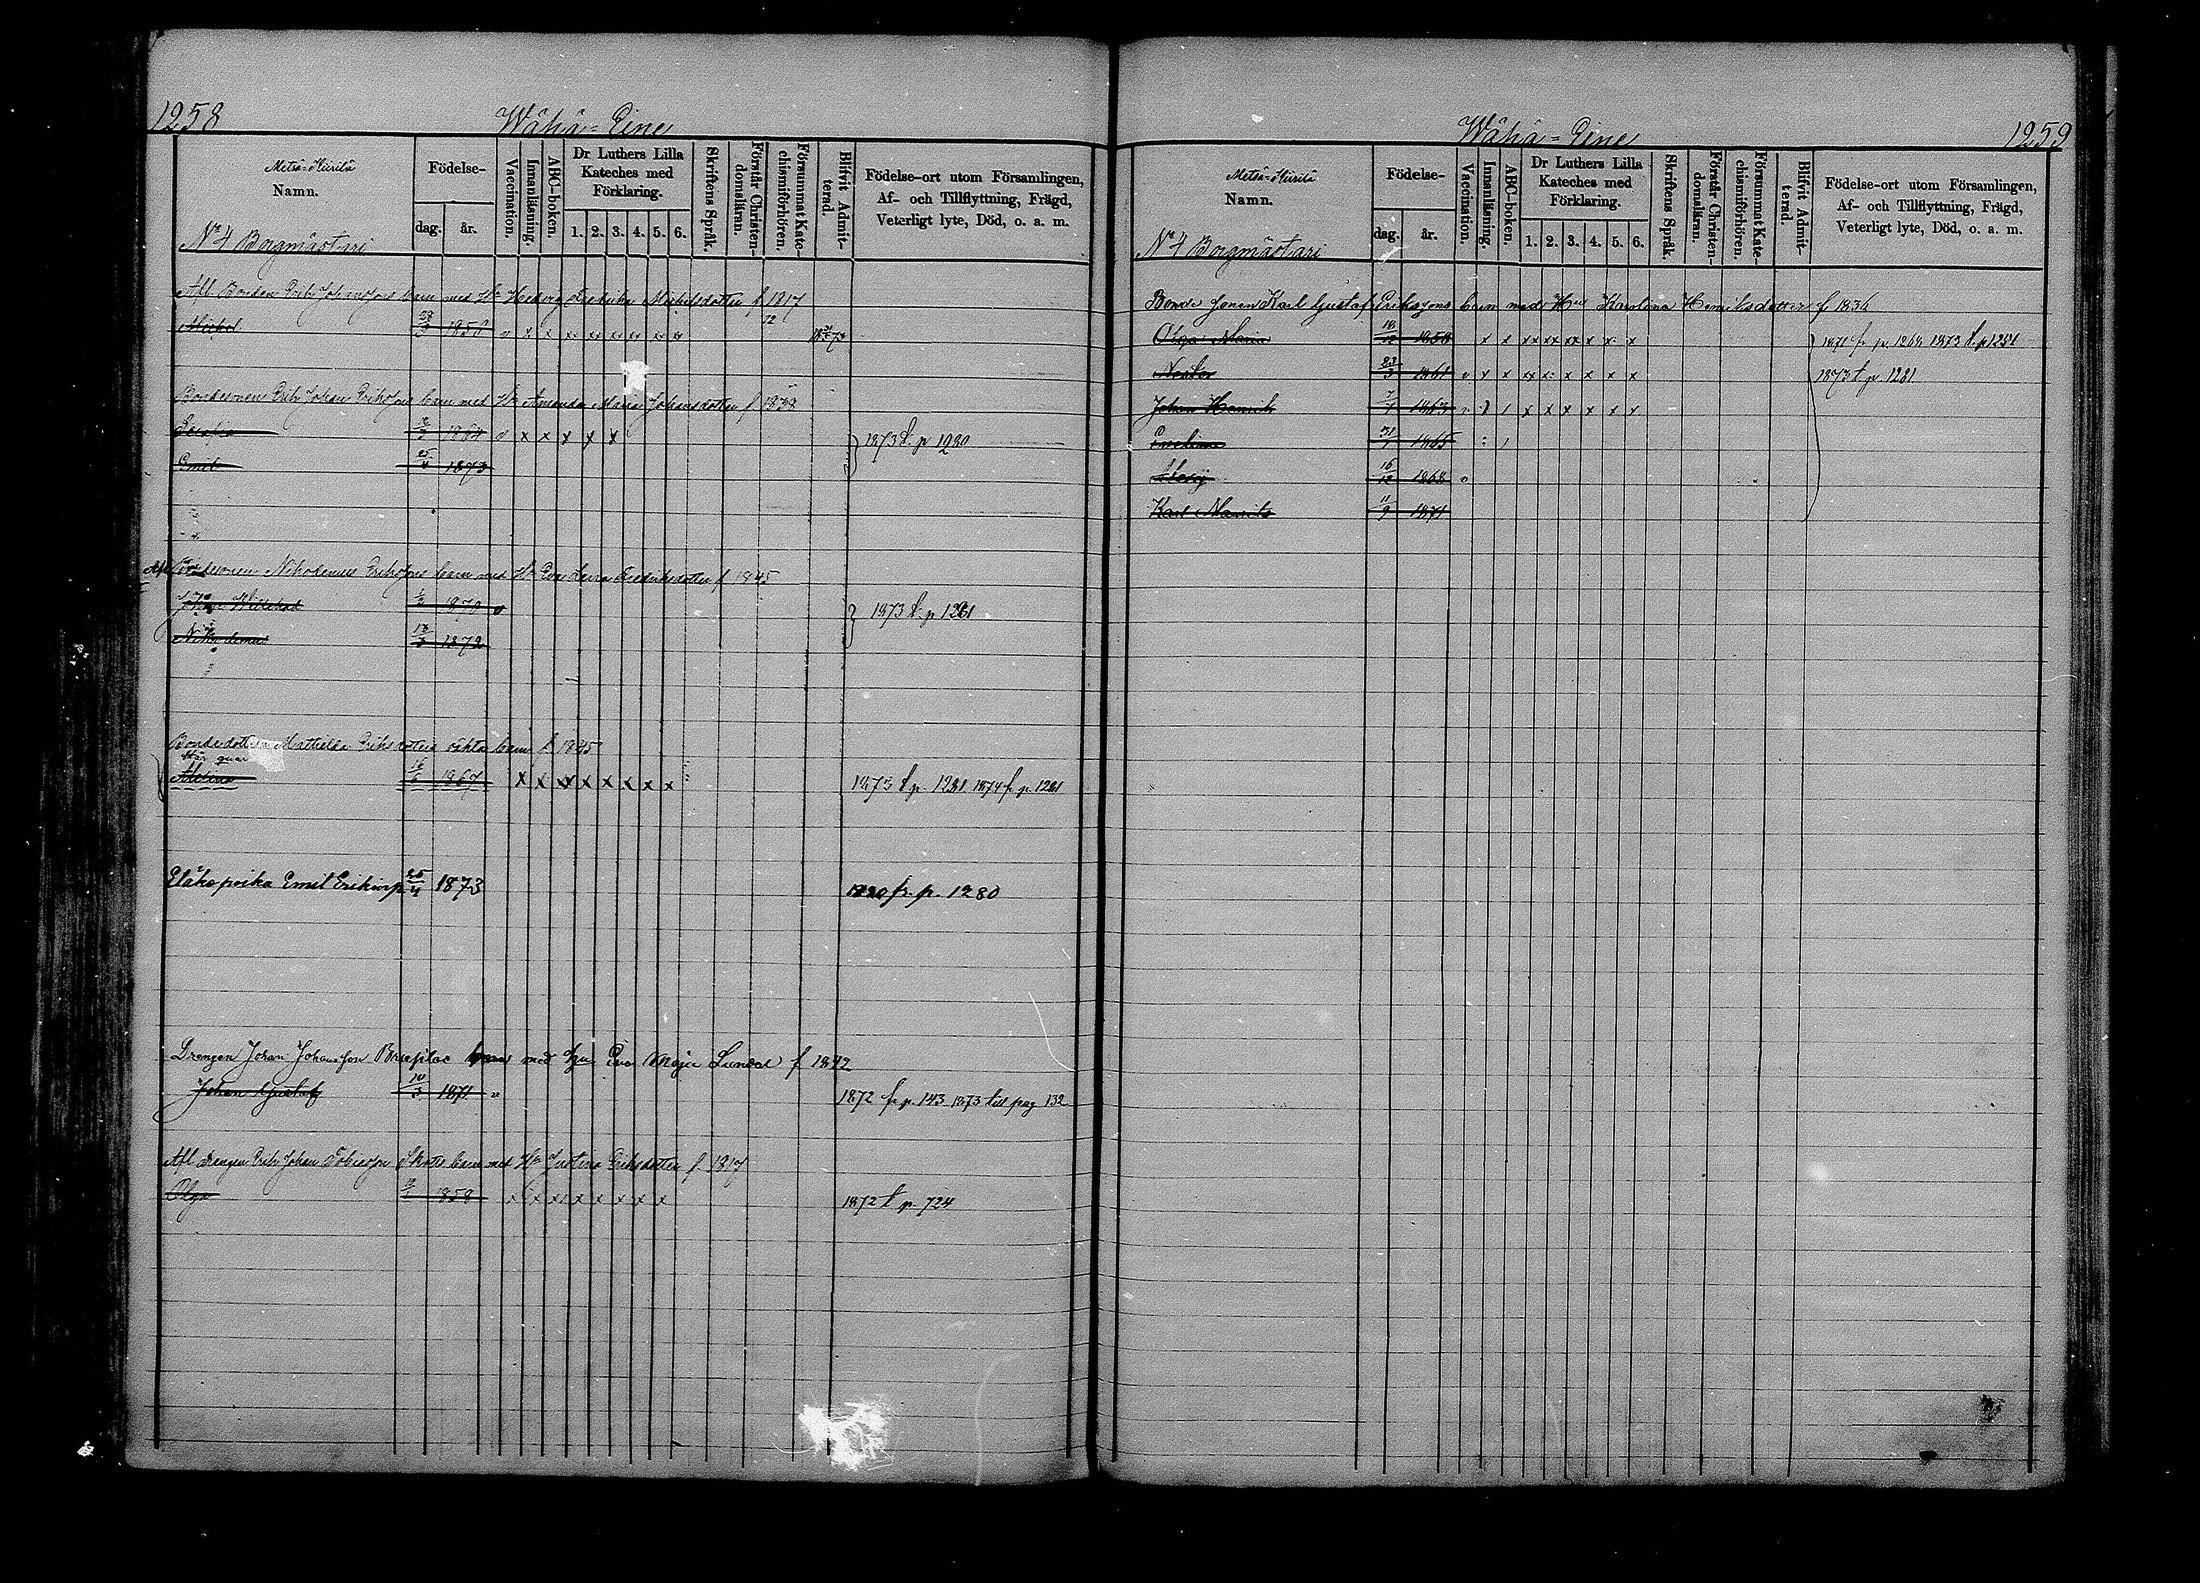 1258
Wähä=Eine
Metsä-Hiirilä
Namn.
Födelse-
dag.
år.
Vaccination.
Innanläsning.
ABC-boken.
Dr Luthers Lilla
Kateches med
Förklaring.
1. 2. 3. 4. 5. 6.
Skriftens Språk.
Förstår Christen-
domsläran.
Försummat Kate-
chismiförhören.
Blifvit Admit-
terad.
Födelse-ort utom Församlingen,
Af- och Tillflyttning, Frägd,
Veterligt lyte, Död, o. a. m.
No 4 Borgmästari
Afl. Bonden Erik Johansons barn med Hu Hedvig Fredrika Michelsdotter f 1817
Michel 1858 v x x x x x x x x
Bondesonen Erik Johan Eriksons barn med Hu Amanda Maria Johansdotter f 1838
1864 v x x x x x 1873 t. p 1280
Emil 25/4 1873
Afl Bondesonen Nikodemus Eriksons barn med Hu Eva Lovisa Fredriksdotter f 1845
Johan Willehad 1870 v 1873 t. p 1281
Nikodemus 1872
Bondedottren Mathilda Eriksdotters oäkta barn f. 1845
Här quar
16/6 1867 x x x x x x x x 1873 t p. 1281. 1874 fr p. 1281
Eläke poika Emil Erikinp. 25/4 1873 fr. p. 1280
Drengen Johan Johansson med Hu Eva Maja Lundal f 1842
Johan Gustaf 10/3 1871 v 1872 fr p. 143 1873 till pag 132
Afl drengen Erik Johan Tobiasson Skott barn med Hu Justina Eriksdotter f. 1817
Olga 1858 x x x x x x x x 1872 t p. 724
1259
Wähä=Eine
Metsä-Hiirilä
Namn.
Födelse-
dag.
år.
Vaccination.
Innanläsning.
ABC-boken.
Dr Luthers Lilla
Kateches med
Förklaring.
1. 2. 3. 4. 5. 6.
Skriftens Språk.
Förstår Christen-
domsläran.
Försummat Kate-
chismiförhören.
Blifvit Admit-
terad.
Födelse-ort utom Församlingen,
Af- och Tillflyttning, Frägd,
Veterligt lyte, Död, o. a. m.
No 4 Borgmästari
Bonde sonen Karl Gustaf Eriksons barn med Hu Karolina Henriksdotter f 1836
Olga Maria 1858 x x xx xx xx x x x 1871 fr p. 1268 1873 t. p 1281
Nestor 23/3 1861 v x x x x x x x x 1873 t p. 1281
Johan Henrik 1863 x x x x x x
Evelina 31/1 1865
16/12 1868 v
Karl Maurits 11/9 1871